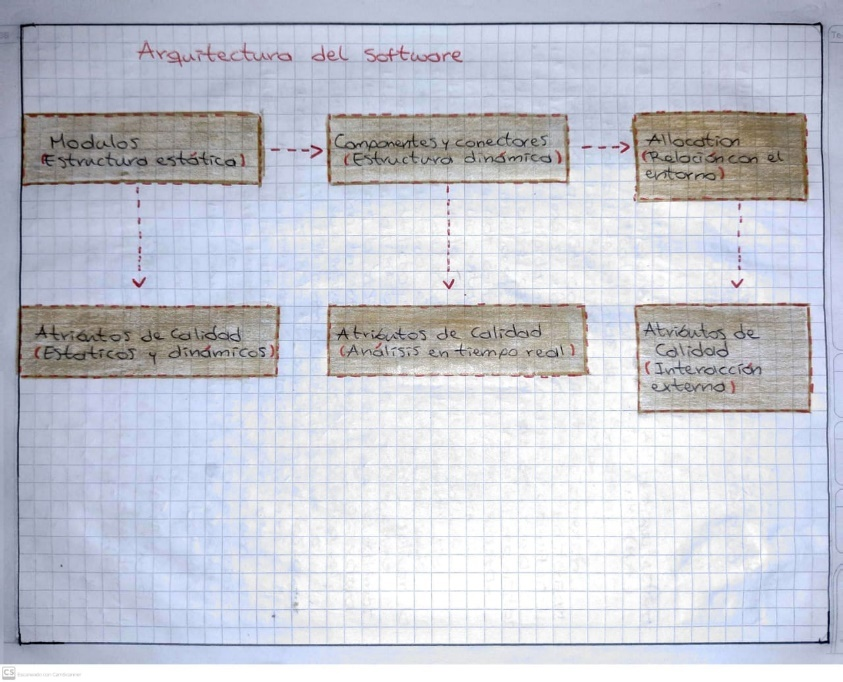 Arquitectura del Software
Modulos
(Estructura estática)
Componentes y conectores
(Estructura dinámica)
Allocation
(Relación con el
entorno)
Atributos de Calidad
(Estaticos y dinámicos)
Atributos de Calidad
(Análisis en tiempo real)
Atributos de
Calidad
(Interacción
externa)
CS Escaneado con CamScanner